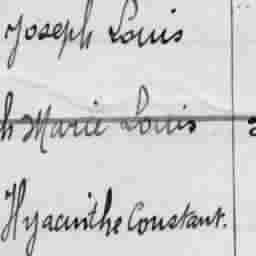 Joseph Louis
h Marie Louis
Hyacinthe Constant.